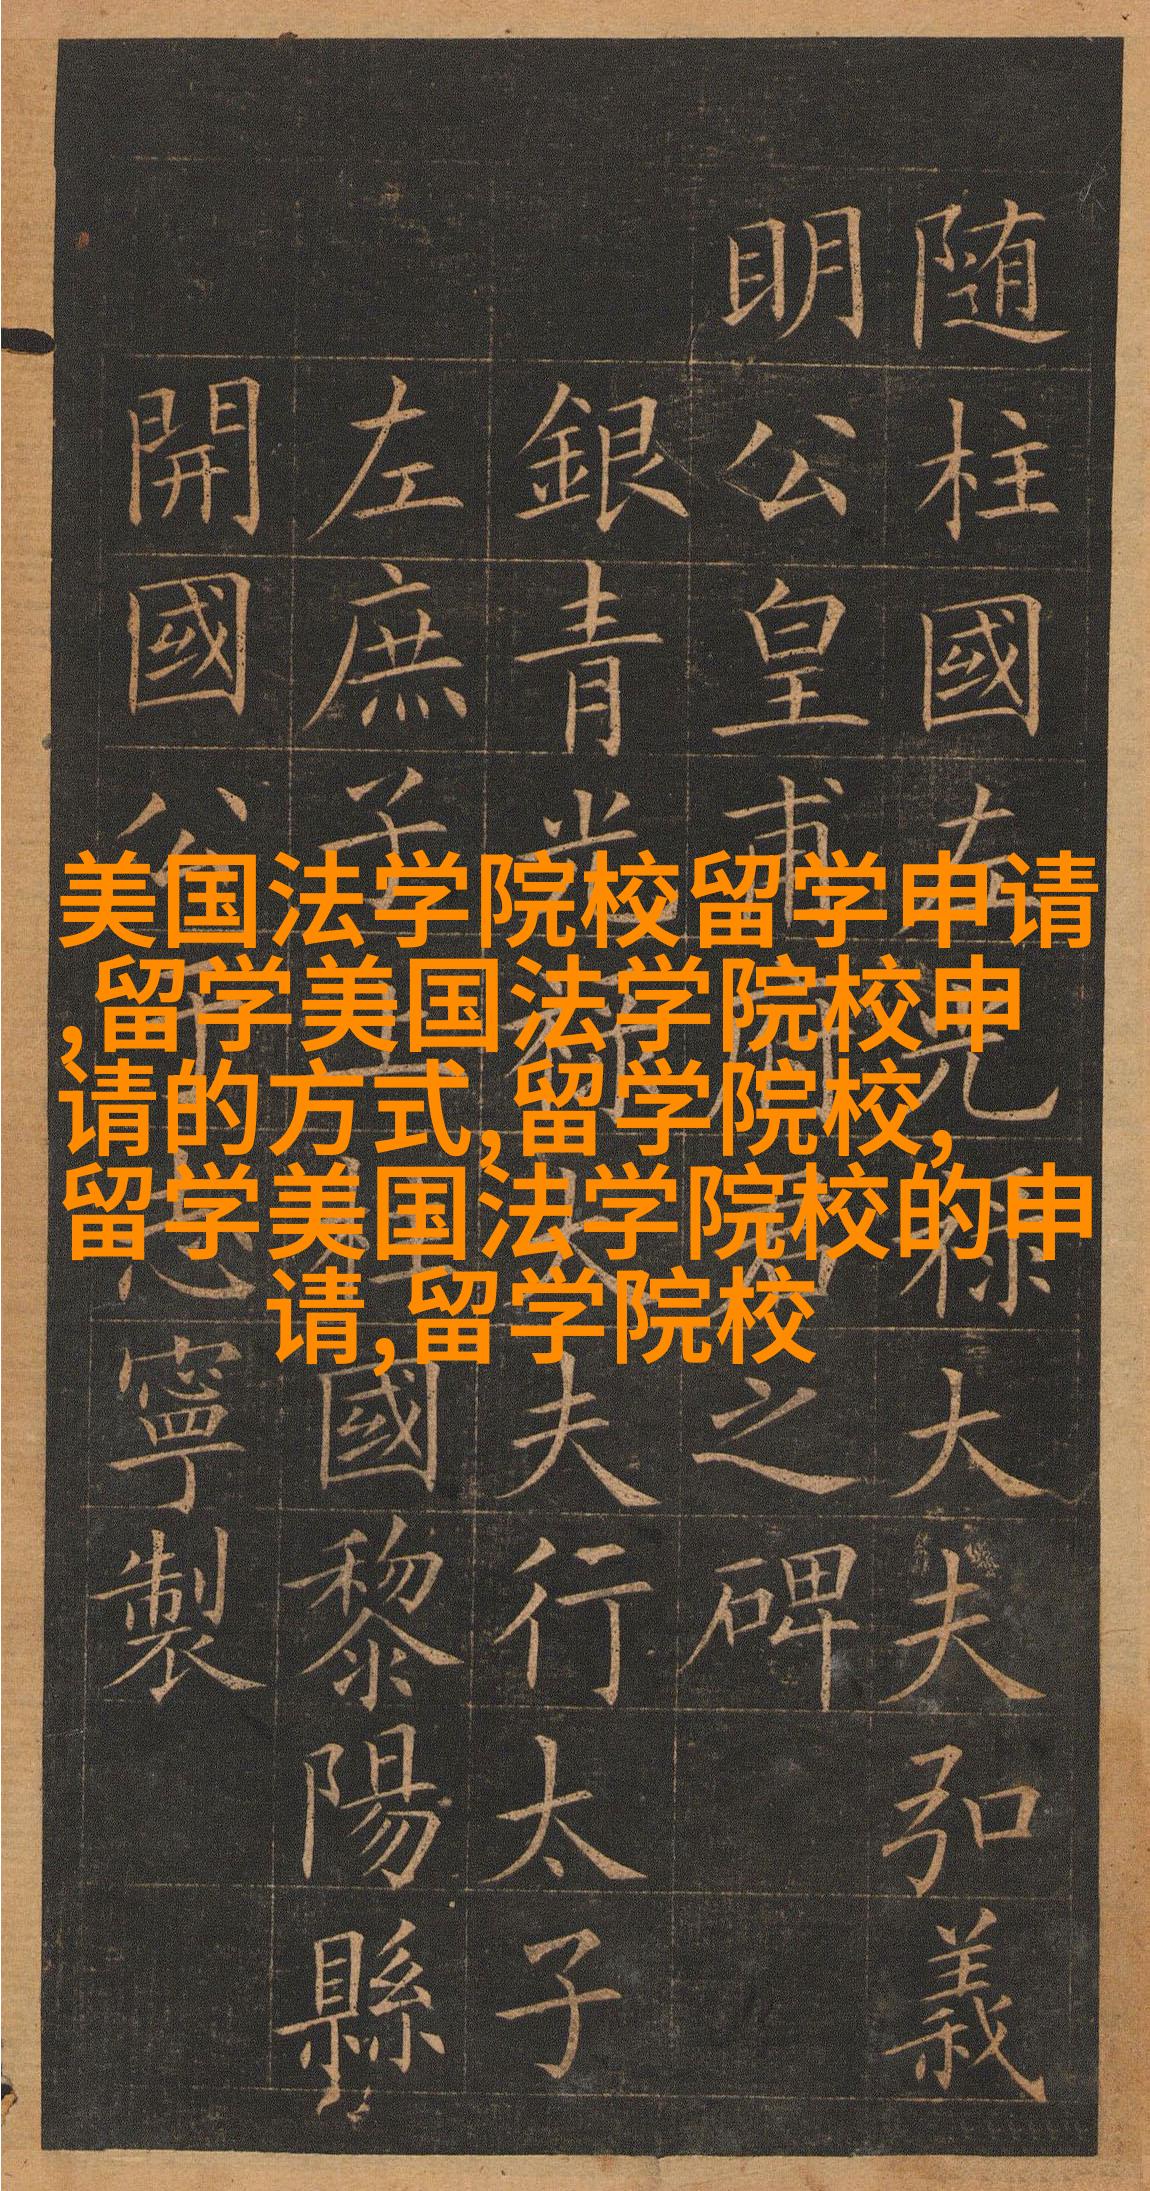 随柱國左光禄大夫弘義
明公皇甫府君之碑
銀青光祿大夫行太子
左庶子上柱國黎陽縣
開國公于志寧製
美国法学院校留学申请
,留学美国法学院校申
请的方式,留学院校,
留学美国法学院校的申
请,留学院校